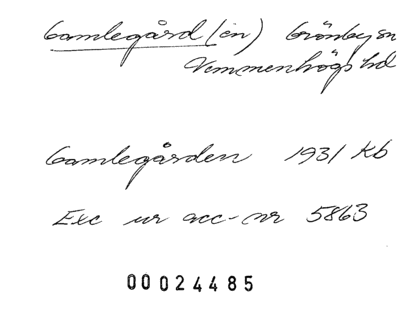 Gamlegård(en) Grönby sn
Vemmenhögs hd
Gamlegården 1931 Kb
Exc ur acc-nr 5863
00024485